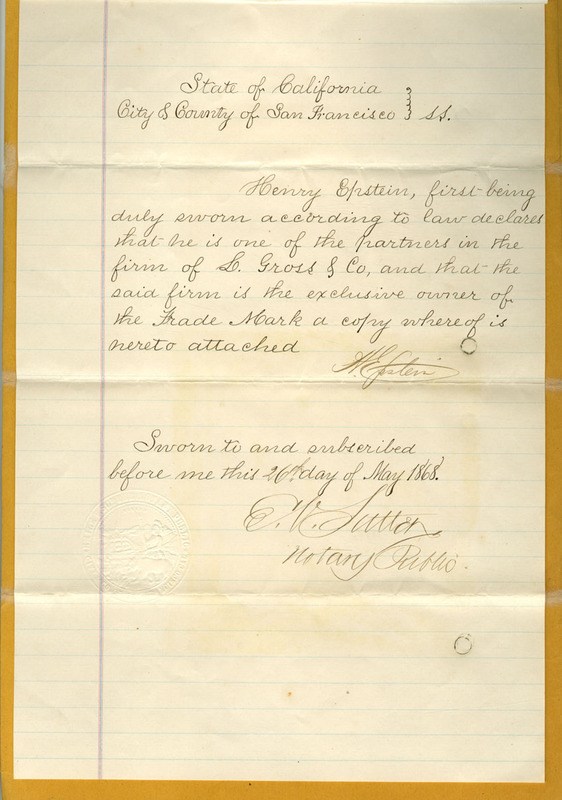 State of California
City & County of San Francisco } SS.
Henry Epstein, first being
duly sworn according to law declares
that he is one of the partners in the
firm of L. Gross & Co, and that the
said firm is the exclusive owner of
the Trade Mark a copy whereof is
hereto attached
H. Epstein
Sworn to and subscribed
before me this 26th day of May 1868.
E. V. Sutter
Notary Public.